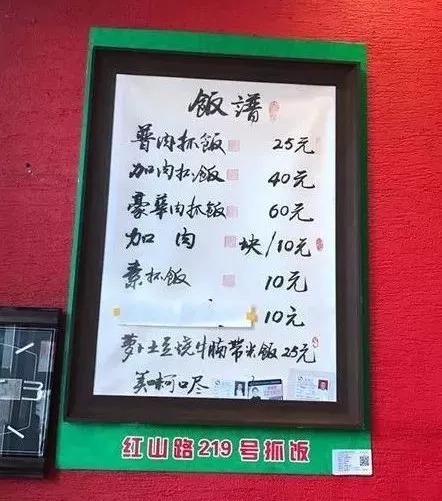 飯譜
普肉抓飯 25元
加肉抓飯 40元
豪華肉抓飯 60元
加肉 块/10元
素抓飯 10元
10元
萝卜土豆烧牛腩带米飯 25元
美味可口尽
红山路219号抓饭